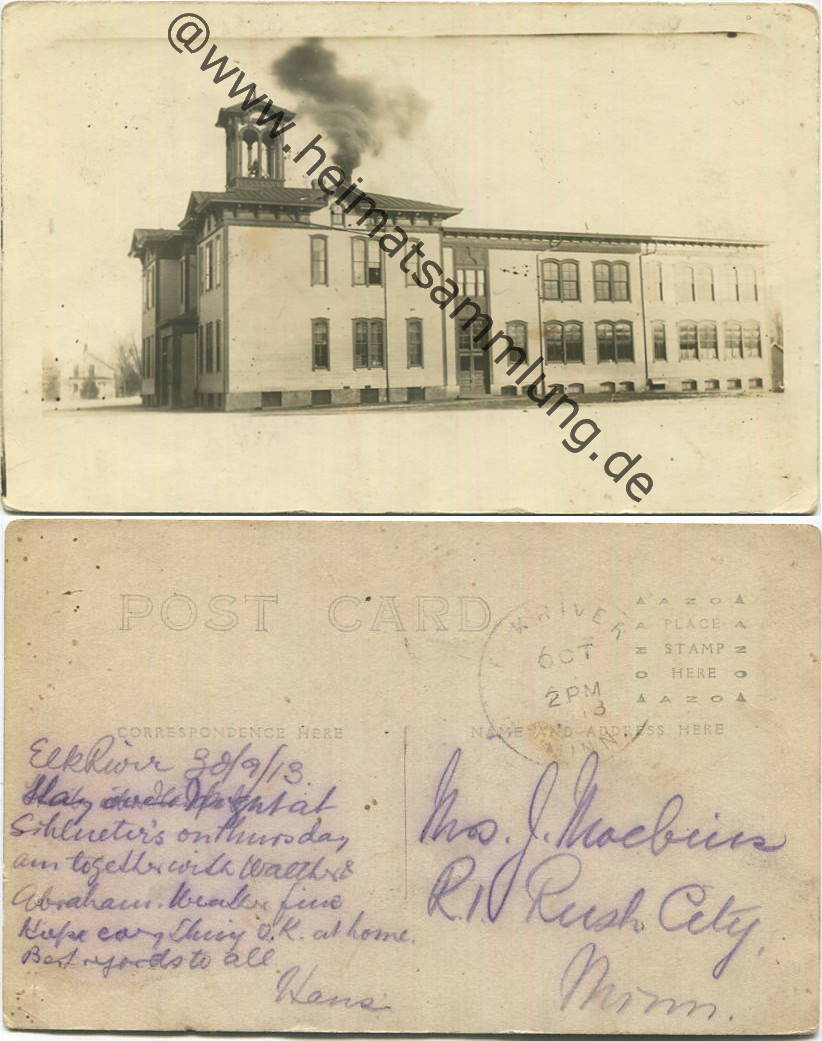 @www.heimatsammlung.de
POST CARD
ELK RIVER
OCT
2PM
13
MINN
AZO
PLACE
STAMP
HERE
AZO
CORRESPONDENCE HERE
NAME AND ADDRESS HERE
Elk River 30/9/13.
Stay over Night at
Schlueter's on thursday
am together with Walther &
Abraham. Weather fine
Hope everything O.K. at home.
Best regards to all.
Hans
Mrs. J. Moebius
R.1. Rush City,
Minn.